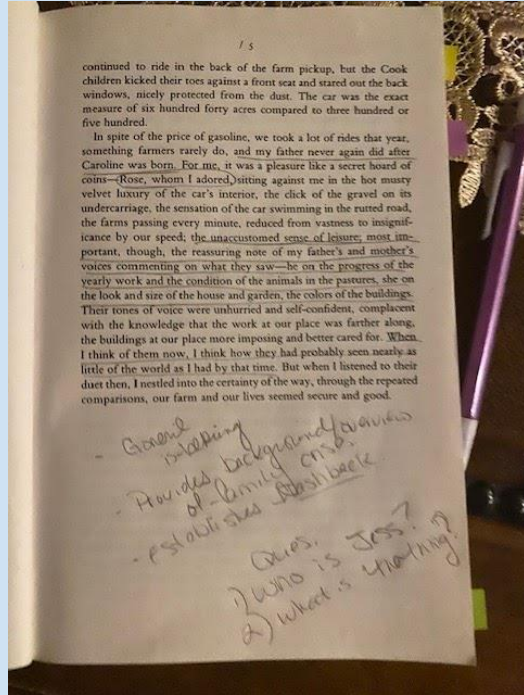 15
continued to ride in the back of the farm pickup, but the Cook
children kicked their toes against a front seat and stared out the back
windows, nicely protected from the dust. The car was the exact
measure of six hundred forty acres compared to three hundred or
five hundred.
In spite of the price of gasoline, we took a lot of rides that year,
something farmers rarely do, and my father never again did after
Caroline was born. For me, it was a pleasure like a secret hoard of
coins—(Rose, whom I adored,) sitting against me in the hot musty
velvet luxury of the car's interior, the click of the gravel on its
undercarriage, the sensation of the car swimming in the rutted road,
the farms passing every minute, reduced from vastness to insignif-
icance by our speed; the unaccustomed sense of leisure; most im-
portant, though, the reassuring note of my father's and mother's
voices commenting on what they saw—he on the progress of the
yearly work and the condition of the animals in the pastures, she on
the look and size of the house and garden, the colors of the buildings.
Their tones of voice were unhurried and self-confident, complacent
with the knowledge that the work at our place was farther along,
the buildings at our place more imposing and better cared for. When
I think of them now, I think how they had probably seen nearly as
little of the world as I had by that time. But when I listened to their
duet then, I nestled into the certainty of the way, through the repeated
comparisons, our farm and our lives seemed secure and good.
- General
- Provides background/overview
of family crisis.
- establishes flashback
Ques.
1) Who is Jess?
2) What is